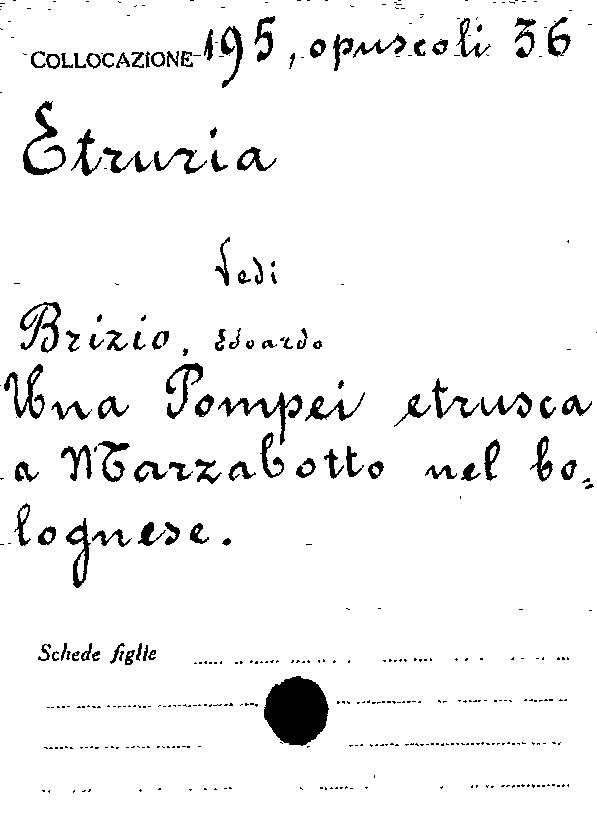 COLLOCAZIONE 195, opuscoli 36
Etruria
Vedi
Brizio, Edoardo
Una Pompei etrusca
a Marzabotto nel bo=
lognese.
Schede figlie